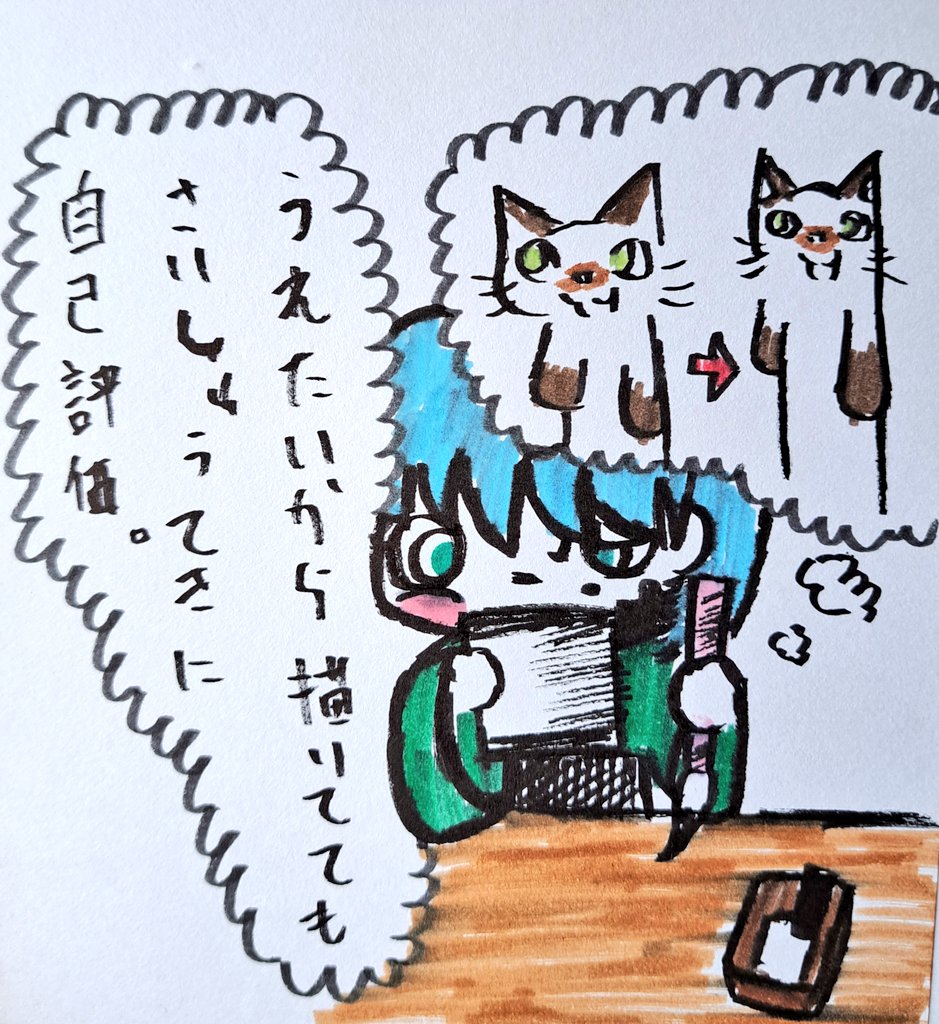 うえたいから描いてても
さいしゅうてきに
自己評価。